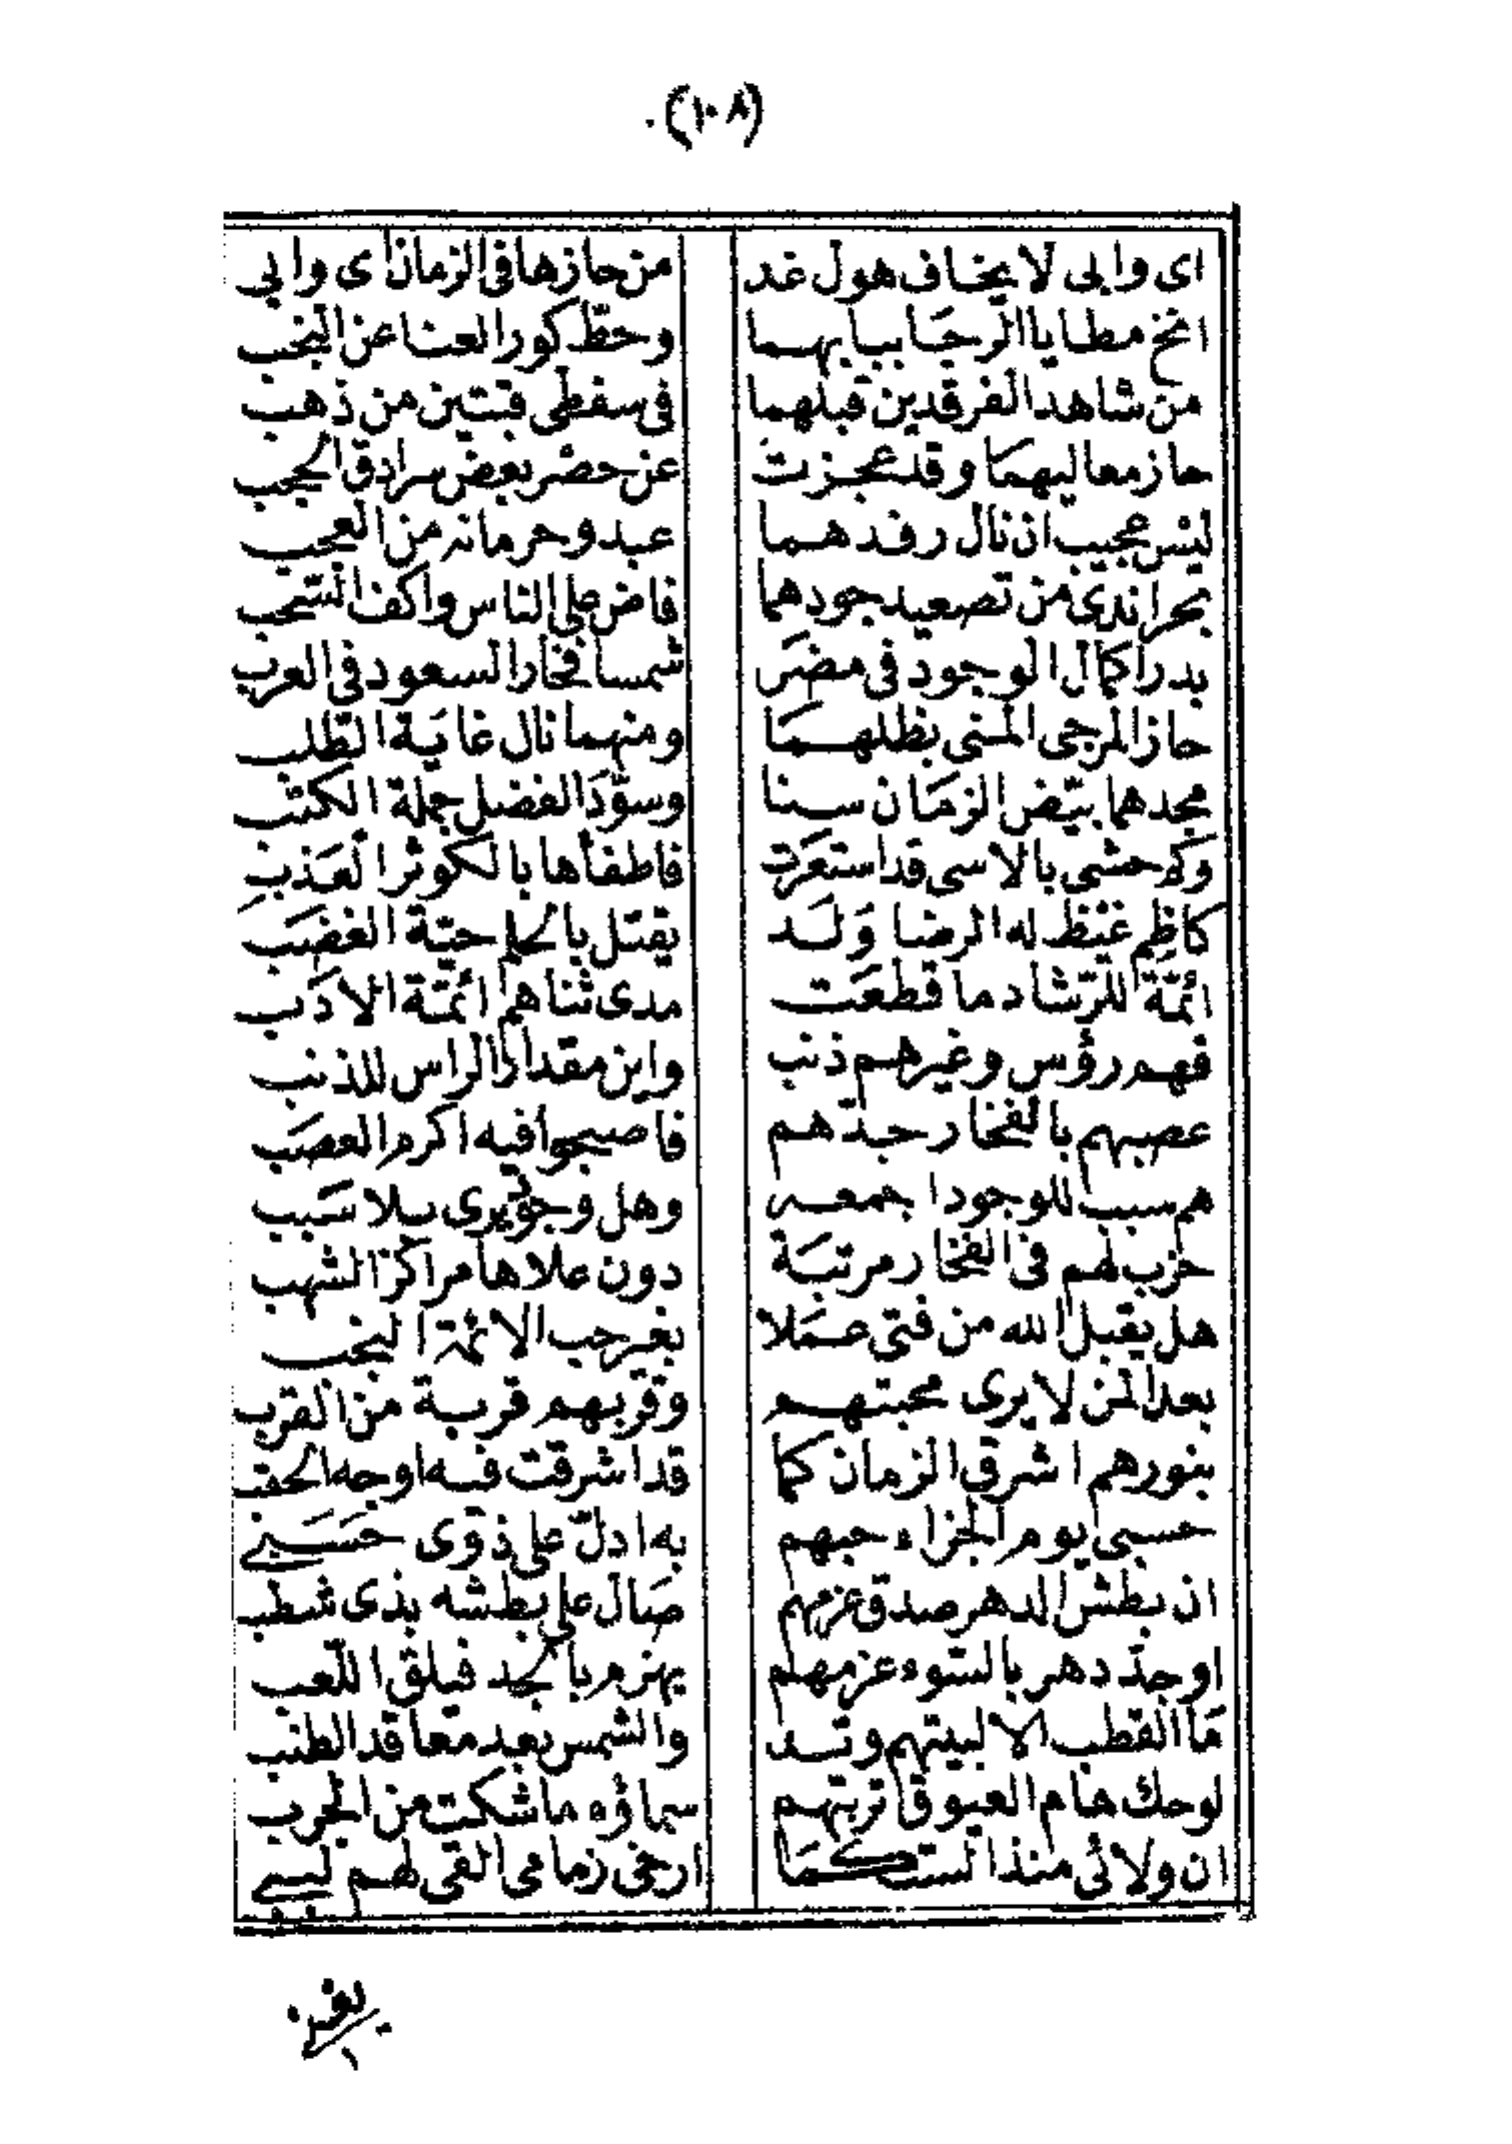 (١٠٨)
اى وابى لا يخاف هول غد من حازها فى الزمان اى وابى
انخ مطايا الرجا ببابهما وحط كور العنا عن النجب
من شاهد الفرقدين قبلهما فى سفطى قبتين من ذهب
حاز معاليهما وقد عجزت عن حصر بعض سرادق الحجب
ليس عجيب ان نال رفدهما عبد وحرمانه من العجب
بحرا ندى من تصعيد جودهما فاض على الناس واكف السحب
بدرا كمال الوجود فى مضر شمسا فخار السعود فى العرب
حاز المرجى المنى بظلهما ومنهما نال غاية الطلب
مجدهما بيّض الزمان سنا وسوّد الفضل جملة الكتب
وكم حشى بالاسى قد استعرت فاطفأها بالكوثر العذب
كاظم غيظ له الرضا ولد يقتل بالحلم حيّة الغضب
ائمّة للرّشاد ما قطعت مدى ثناهم ائمّة الادب
فهم رؤس وغيرهم ذنب واين مقدار الراس للذنب
عصبهم بالفخار جدّهم فاصبحوا فيه اكرم العصب
هم سبب للوجود اجمعه وهل وجود يرى بلا سبب
حزب لهم فى الفخار مرتبة دون علاها مراكز الشهب
هل يقبل الله من فتى عملا بغير حب الائمة النجب
بعدا لمن لا يرى محبتهم وقربهم قربة من القرب
بنورهم اشرق الزمان كما قد اشرقت فيه اوجه الحقب
حسبى يوم الجزاء حبهم به ادلّ على ذوى حسبي
ان بطش الدهر صدق عزمهم صال على بطشه بذى شطب
او جدّ دهر بالسّوء عزمهم يهزم بالجد فيلق اللّعب
ما القطب الا لبيتهم وتد والشمس بعد معاقد الطنب
لو حك هام العيوق تربتهم سماؤه ما شكت من الجرب
ان ولائى منذ الست كما ارخى زمامى القى لهم لببي